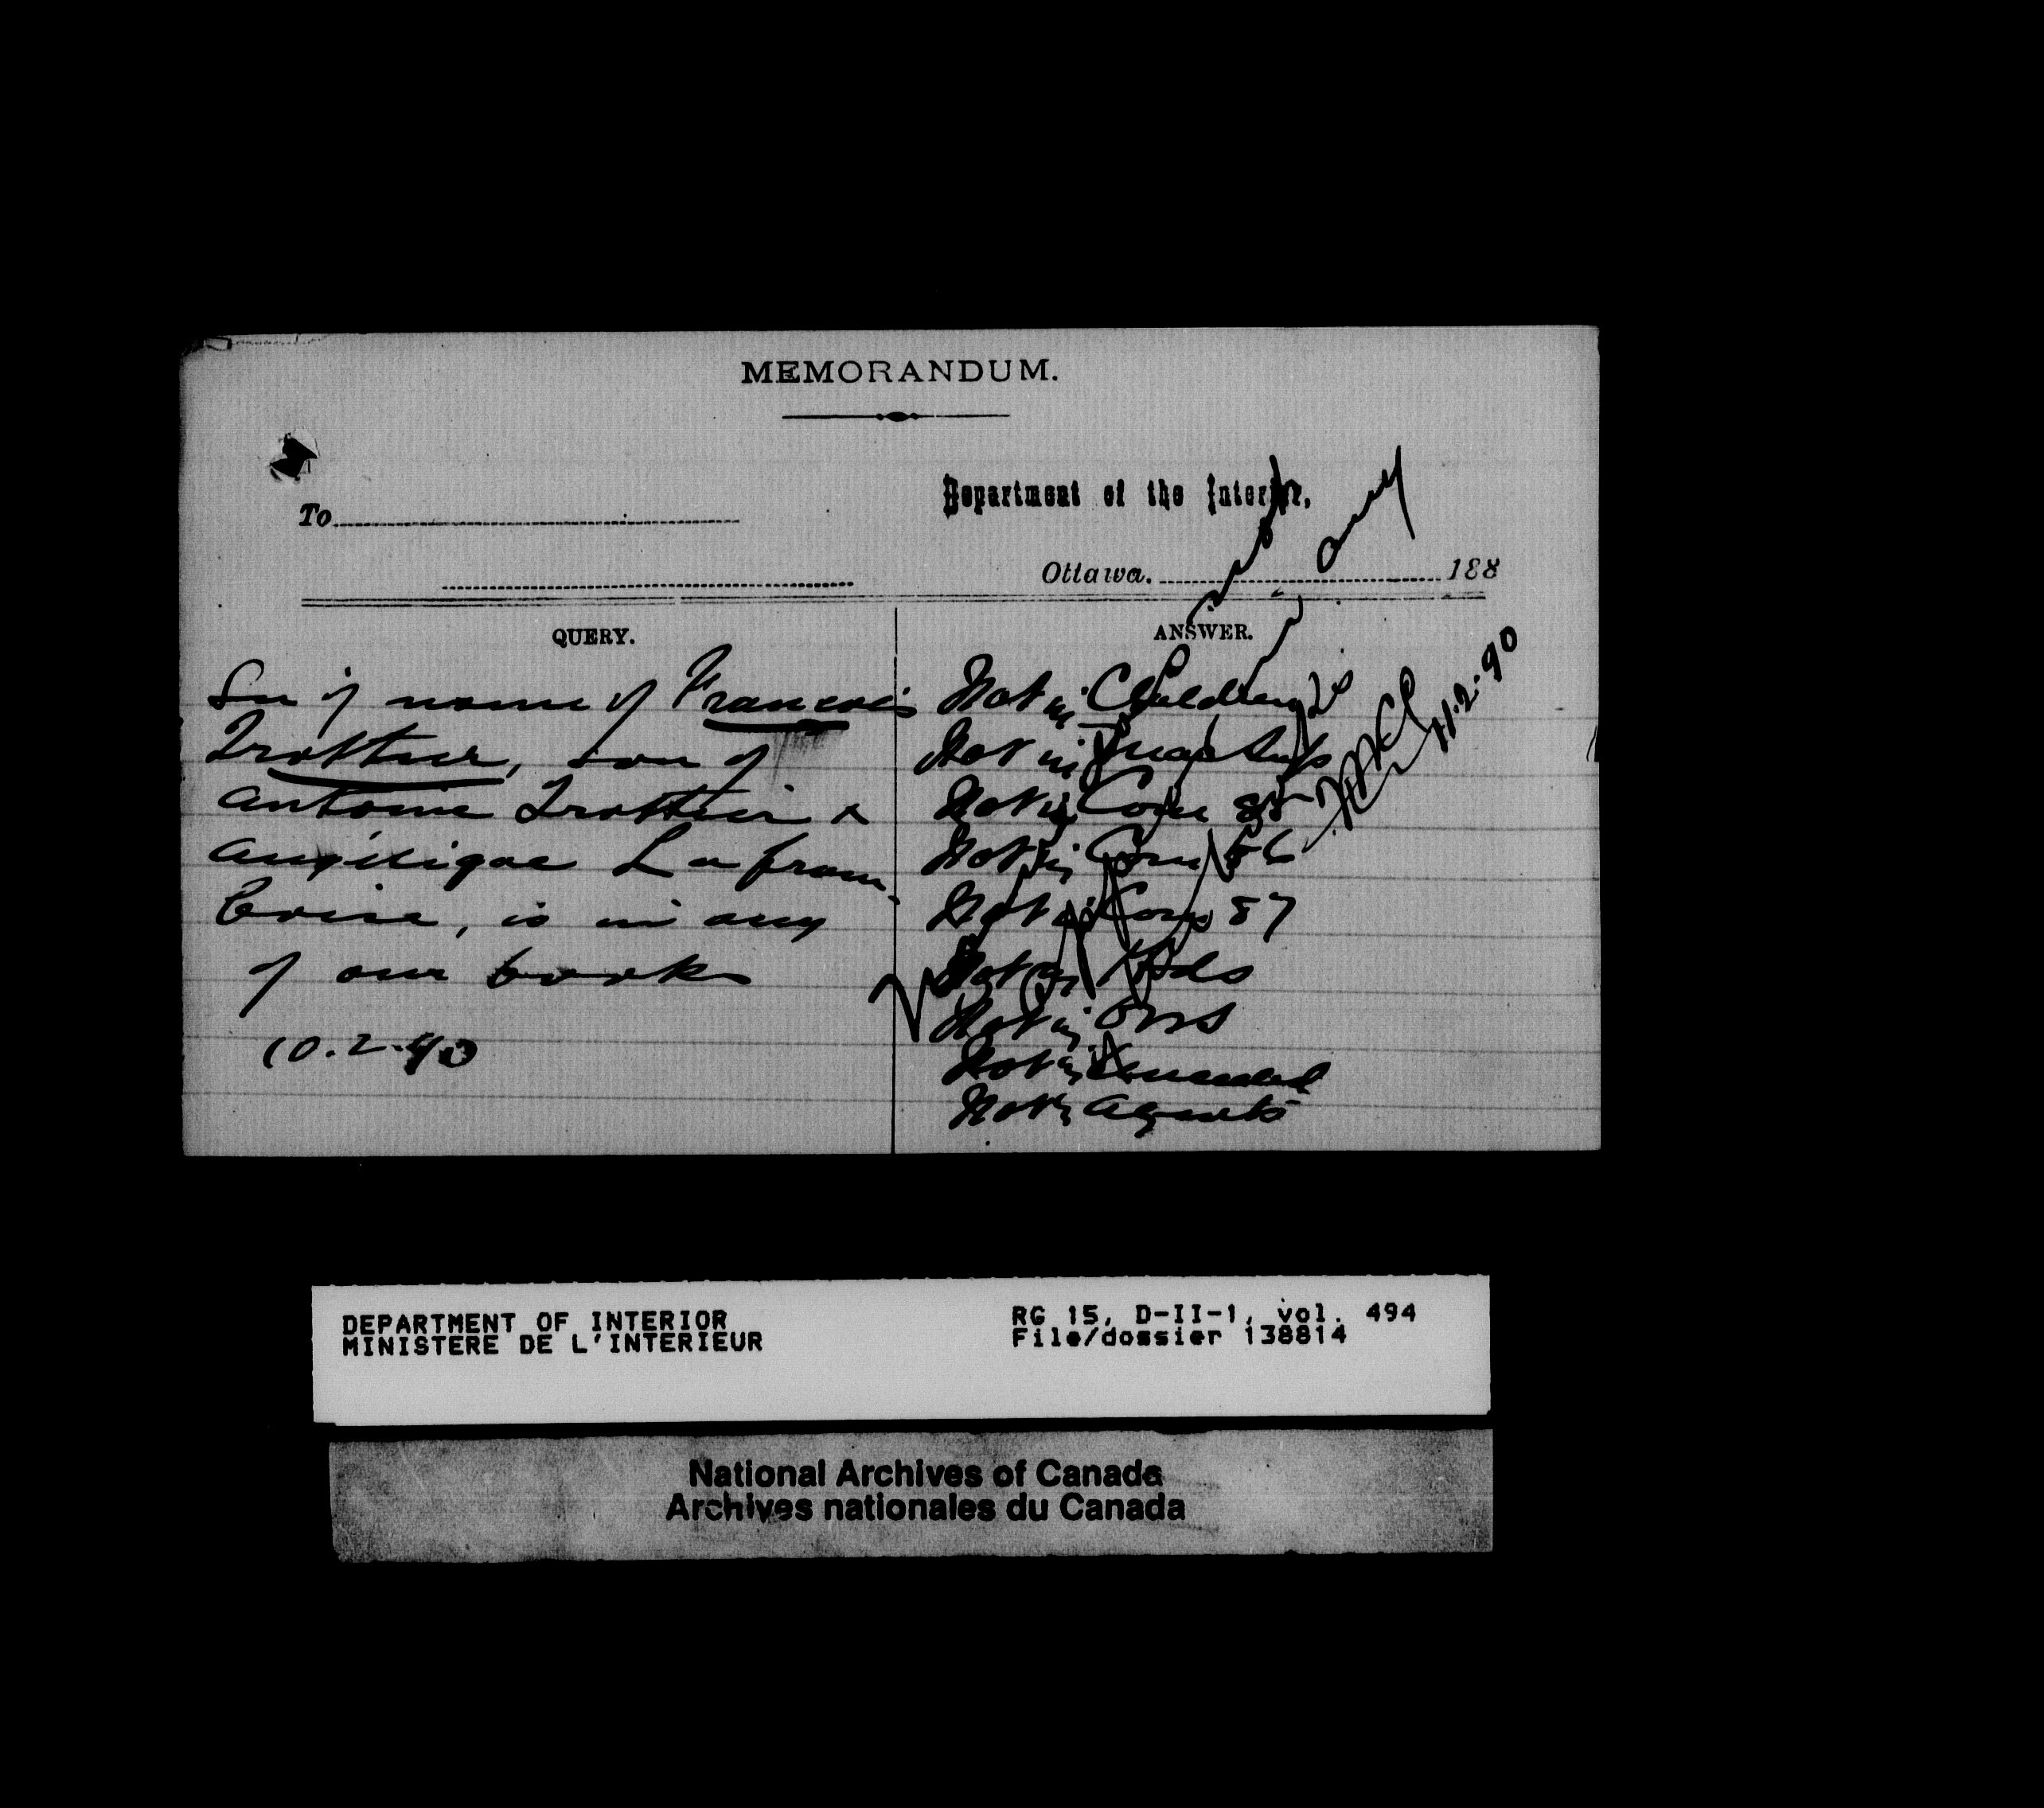 MEMORANDUM.
To
Department of the Interior,
Ottawa. 188
QUERY.
See if name of Francois
Trottier, son of
Antoine Trottier &
Angelique Lafram-
boise, is in any
of our books
10.2.90
ANSWER.
Not in Children
Not in Supts
Not in Com 85
Not in Com 86
Not in Com 87
Not in Hds
Not in
Not in Amended
Not in Agents
not in any
11.2.90
DEPARTMENT OF INTERIOR
MINISTERE DE L'INTERIEUR
RG 15, D-II-1, vol. 494
File/dossier 138814
National Archives of Canada
Archives nationales du Canada